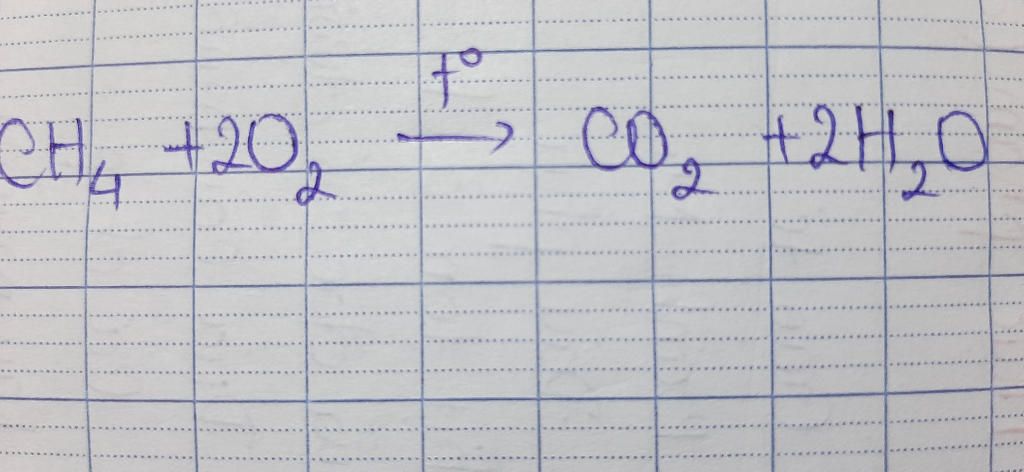 t°
CH₄ +2O₂ → CO₂ +2H₂O